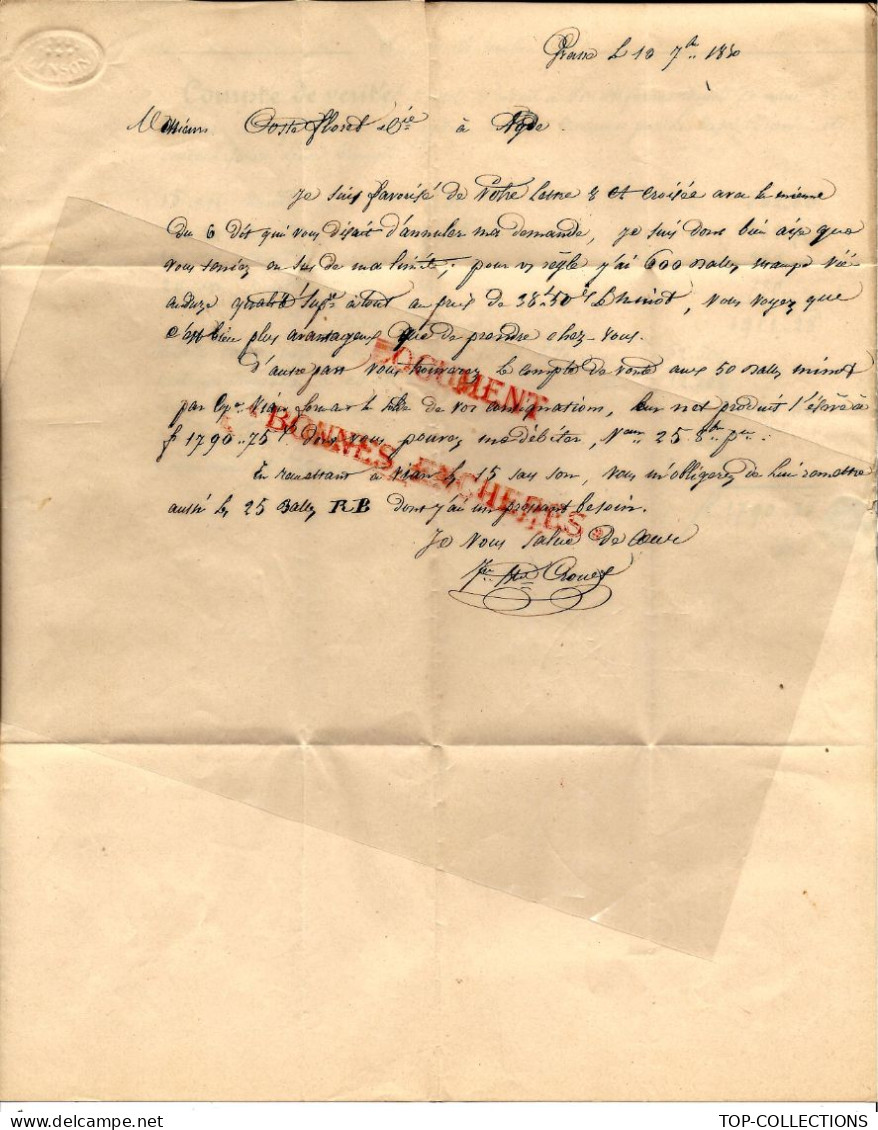 CANSON
le 10 7bre 1850
Messieurs Coste floret & Cie à Agde.
Je suis favorisé de Votre Lettre 8 ct croisée avec la mienne
du 6 dit qui vous disait d'annuler ma demande, Je suis donc bien aise que
vous soyiez en sus de ma limite, pour vre règle j'ai 600 Balles
qualité supre à tout au prix de 38f50c le minot, vous voyez que
c'est bien plus avantageux que de prendre chez vous.
D'autre part vous trouverez le compte de vente aux 50 Balles minot
par Cpne Vian le solde de vos consignations, leur net produit s'élève à
f 1790..75c dont vous pouvez me débiter, Veur 25 8bre pn.
En remettant à Vian les 15 son, vous m'obligerez de lui remettre
aussi les 25 Balles RB dont j'ai un pressant besoin.
Je Vous salue De Cœur
DOCUMENT
BONNES ENCHERES
TOP-COLLECTIONS